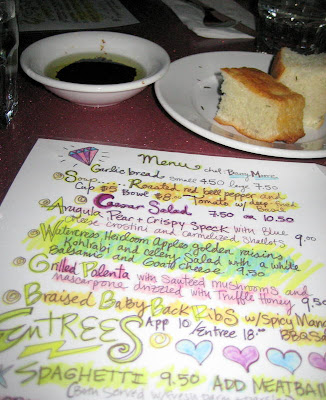 Menu chef Barry
Garlic bread small 4.50 large 7.50
Soup... Roasted red bell pepper and
Cup Bowl Tomato w/
Caesar Salad 7.50 or 10.50
Arugula Pear + Crispy Speck with Blue
cheese crostini and carmelized Shallots 9.00
Watercress Heirloom Apples golden raisins
Kohlrabi and celery Salad with a white
Balsamic and Goat cheese 9.50
Grilled Polenta with Sauteed mushrooms and
mascarpone drizzled with Truffle Honey 9.50
Braised Baby Back Ribs w/ Spicy
App 10 / Entree 18.00 BBQ
ENTREES
SPAGHETTI 9.50 ADD MEATBALL